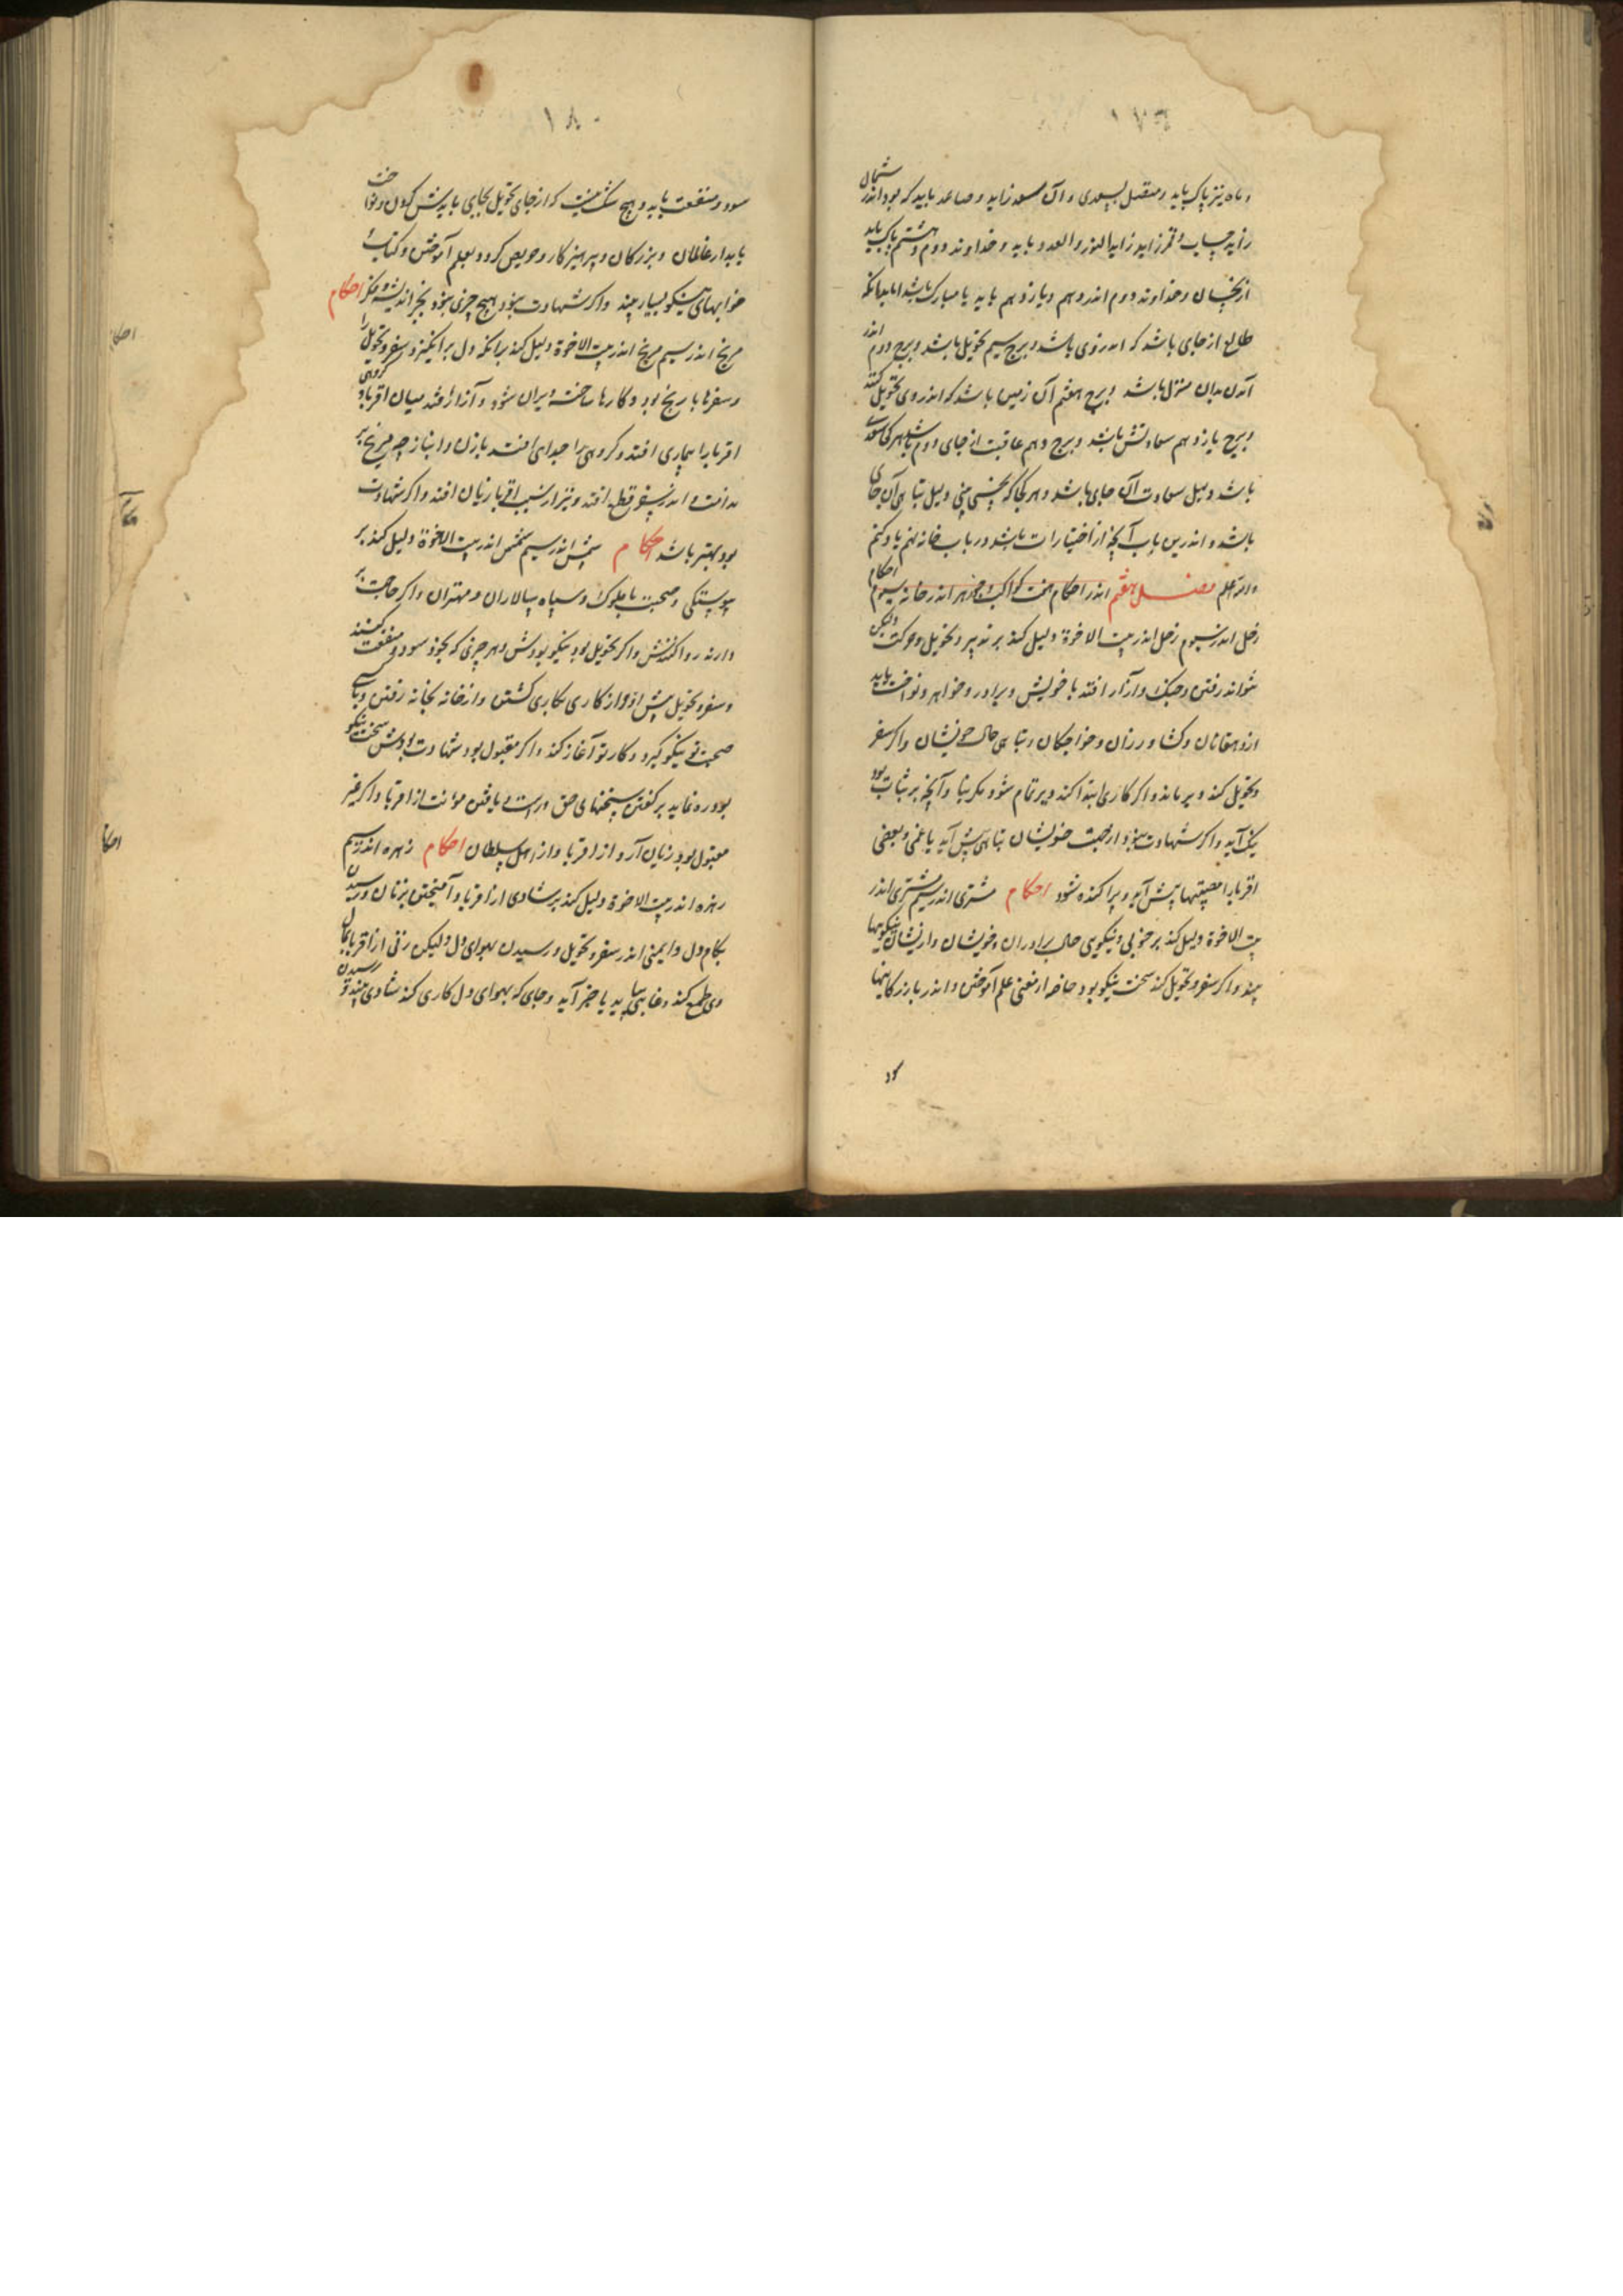 ۱۷۹
و ماه نیز پاک باید و متصل بسعدی و آن سعد زاید و صاعد باید که بود اندر شمال
زاید حساب و قمر زاید زاید النور و العدد باید و خداوند دوم و هشتم پاک باید
از نحسان و خداوند دوم اندر دهم و یازدهم باید یا مبارک باشد اما بدانکه
طالع از جای باشد که اندروی باشد و برج سیم تحویل باشد و برج دوم اندر
آمدن بدان منزل باشد و برج هفتم آن زمین باشد که اندروی تحویل کند
و برج یازدهم سعادتش باشد و برج دهم عاقبت از جای دوم باشد هر کجا سعدی
باشد دلیل سعادت آن جای باشد و هر کجا که نحسی بینی دلیل تباهی آن جای
باشد و اندرین باب آنچه از اختیارات باشد در باب خانه نهم یاد کنم
والله اعلم فصل هفتم اندر احکام هفت کواکب و جوزهر اندر خانه سیوم احکام
زحل اندر سیوم زحل اندر بیت الاخوة دلیل کند بر تدبیر و تحویل و حرکت ولیکن
نتواند رفتن و جنگ و آزار افتد با خویش و برادر و خواهر و نواخت یابد
از دهقانان و کشاورزان و خواجکان و تباهی حال خویشان و اکر سفر
و تحویل کند دیر ماند و اکر کاری ابتدا کند دیر تمام شود مکر بنا و آنچه بر ثبات بود
نیک آید و اکر شهادت نبود از جهت خویشان تباهی پیش آید یا غمی و بعضی
اقربا را مصیبتها پیش آید و پراکنده شود احکام مشتری اندر سیم مشتری اندر
بیت الاخوة دلیل کند بر خوبی و نیکویی حال برادران و خویشان و از ایشان نیکویها
بیند و اکر سفر و تحویل کند سخت نیکو بود خاصه از معنی علم آموختن و اندر بازرکانیها
۱۸۰
سود و منفعت یابد و هیچ شک نیست که از جای تحویل بجایی بایدش کردن و نواخت
یابد از عالمان و بزرکان و پرهیزکار و حریص کردد بعلم آموختن و کتاب
خوابهای نیکو بسیار بیند و اکر شهادت نبود هیچ چیزی نبود بجز اندیشه و فکر احکام
مریخ اندر سیم مریخ اندر بیت الاخوة دلیل کند بدانکه دل برانکیزد سفر و تحویل را
و سفرها با رنج بود و کارها ساخته ویران شود و آزار افتد میان اقربا و کروهی
اقربا را بیماری افتد و کروهی را جدایی افتد با زن و انباز چه مریخ بر
اندر سفر قطع افتد و نیز از سبب اقربا زیان افتد و اکر شهادت
بود بهتر باشد احکام شمس اندر سیم شمس اندر بیت الاخوة دلیل کند بر
پیوستکی و صحبت با ملوک و سپاه سالاران و مهتران و اکر حاجت بر
دارند روا کنندش و اکر تحویل بود نیکو بودش و هر چیزی که بجوید سود و منفعت کنند
و سفر و تحویل پیش آید و از کاری بکاری کشتن و از خانه بخانه رفتن و با کسی
صحبت نو نیکو کیرد و کار نو آغاز کند و اکر مقبول بود شهادت بودش سخت نیکو
بود و ره نماید بر کفتن سخنهای حق و راست و یافتن مؤانت از اقربا و اکر غیر
مقبول بود زیان آرد از اقربا و از اهل سلطان احکام زهره اندر سیم
زهره اندر بیت الاخوة دلیل کند بر شادی از اقربا و آمیختن بزنان و رسیدن
بکام دل و ایمنی اندر سفر و تحویل و رسیدن بهوای دل ولیکن زنی از اقربا بمال
وی طمع کند و غایبی بیاید یا خبر آید و جای که بهوای دل کاری کند شادی بیند و رسیدن